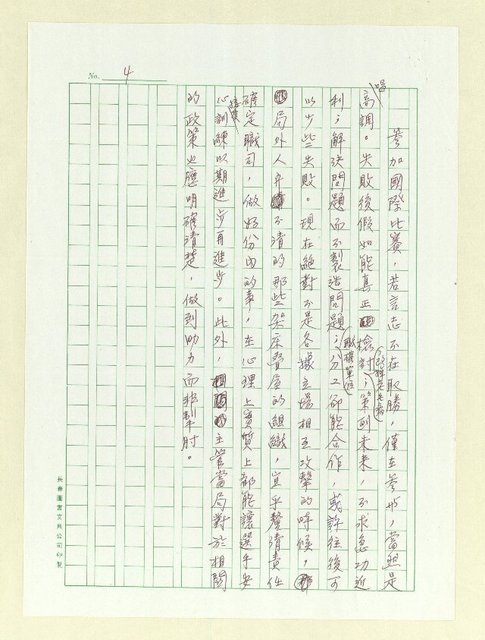 No. 4
參加國際比賽，若言志不在取勝，僅在參加，當然是
唱高調。失敗後假如能真正檢討，策劃未來，不求急功近
利；解決問題而不製造問題；分工卻能合作，或許往後可
以少些失敗。現在絕對不是各據立場相互攻擊的時候，
局外人弄不清的那些架床疊屋的組織，宜乎釐清責任
確定職司，做好份內的事，在心理上實質上都能讓選手安
心訓練以期進步再進步。此外，主管當局對於相關
的政策也應明確清楚，做到助力而非掣肘。
長春圖書文具公司印製